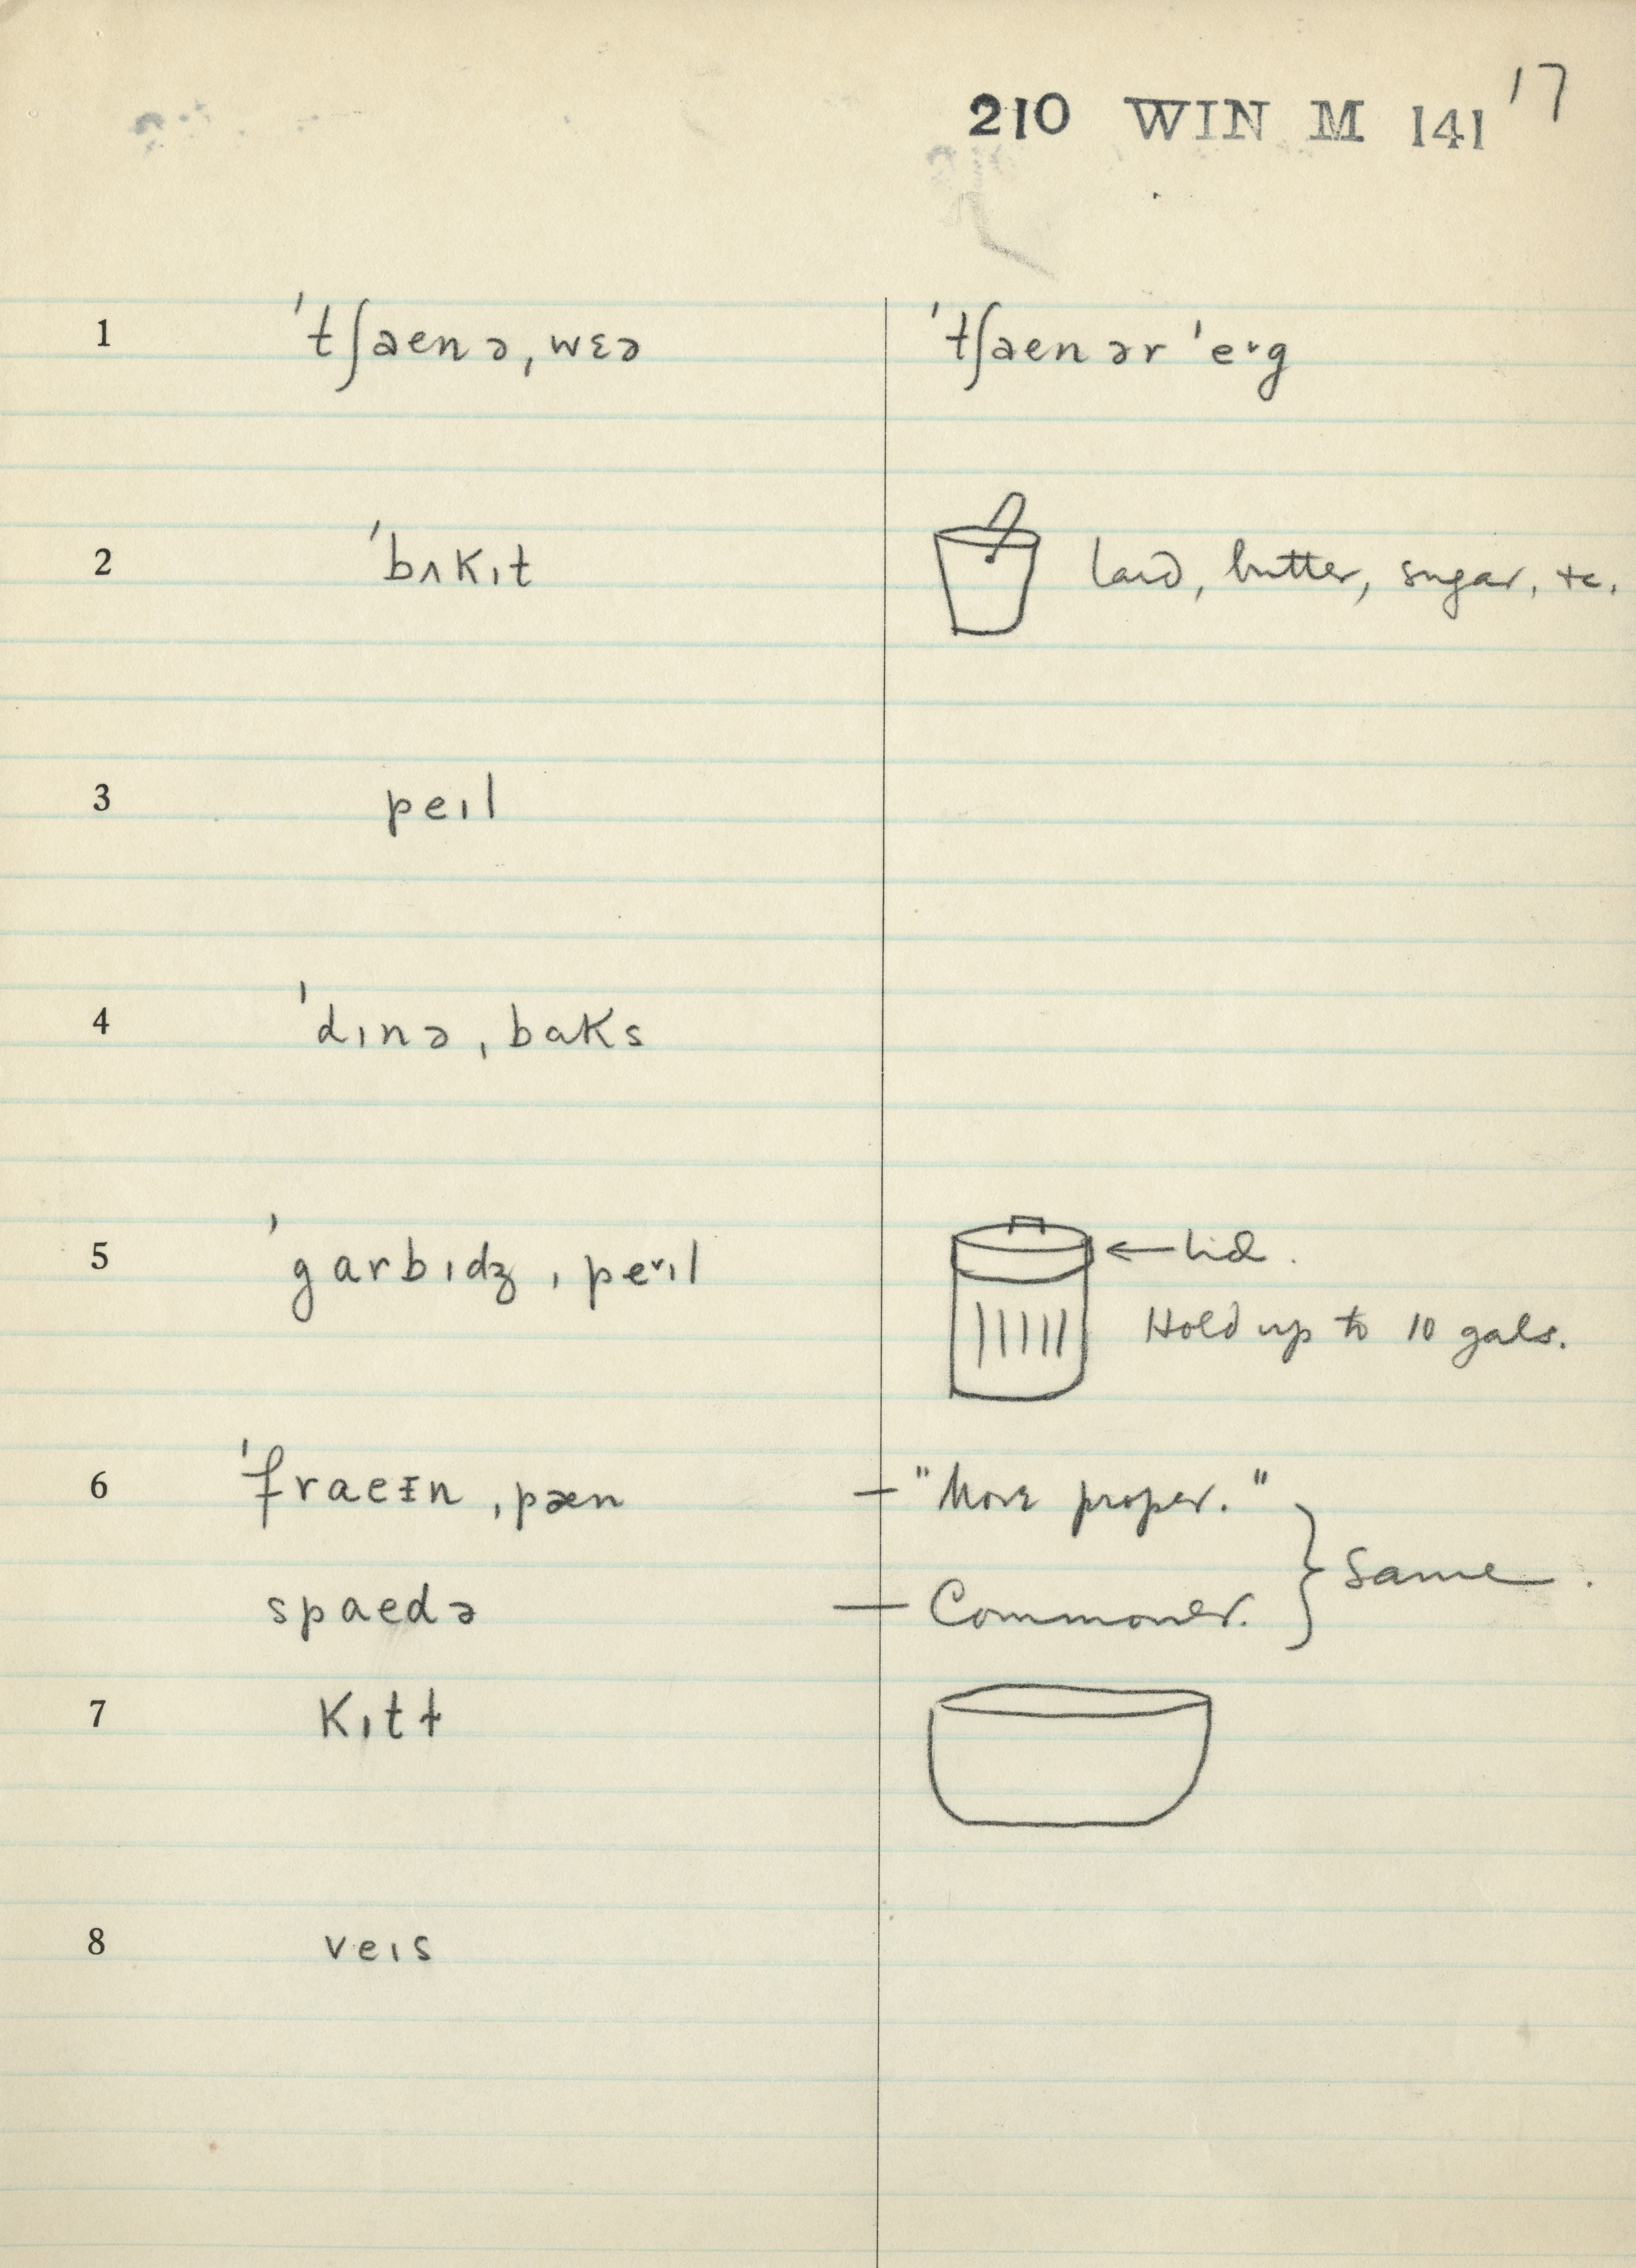 210 WIN M 141 17
1 ˈtʃaenə, wɛə ˈtʃaenər ˈe˞g
2 ˈbʌkɪt lard, butter, sugar, etc.
3 peɪl
4 ˈdɪnə ˌbaks
5 ˈgarbɪdʒ ˌpe˞ɪl ← lid.
Hold up to 10 gals.
6 ˈfraeɪn ˌpæn — "More proper."
} Same.
spaedə — Commoner.
7 kɪtɫ
8 veɪs